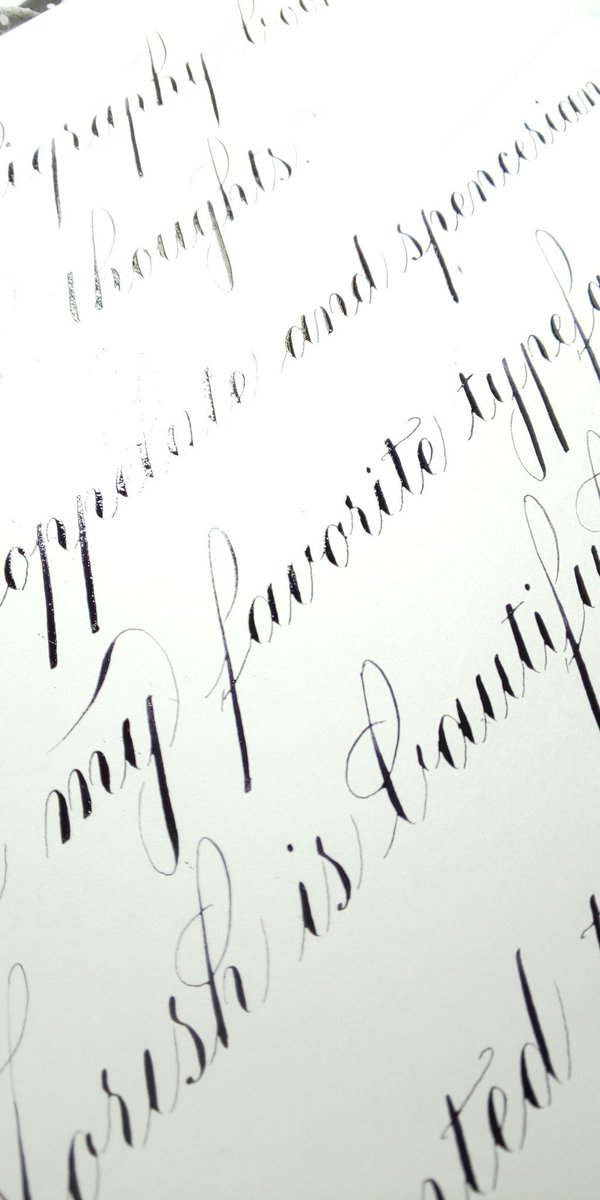 igraphy boo
thoughts.
oppelate and spencerian
my favorite typefa
lorish is beautifu
nted